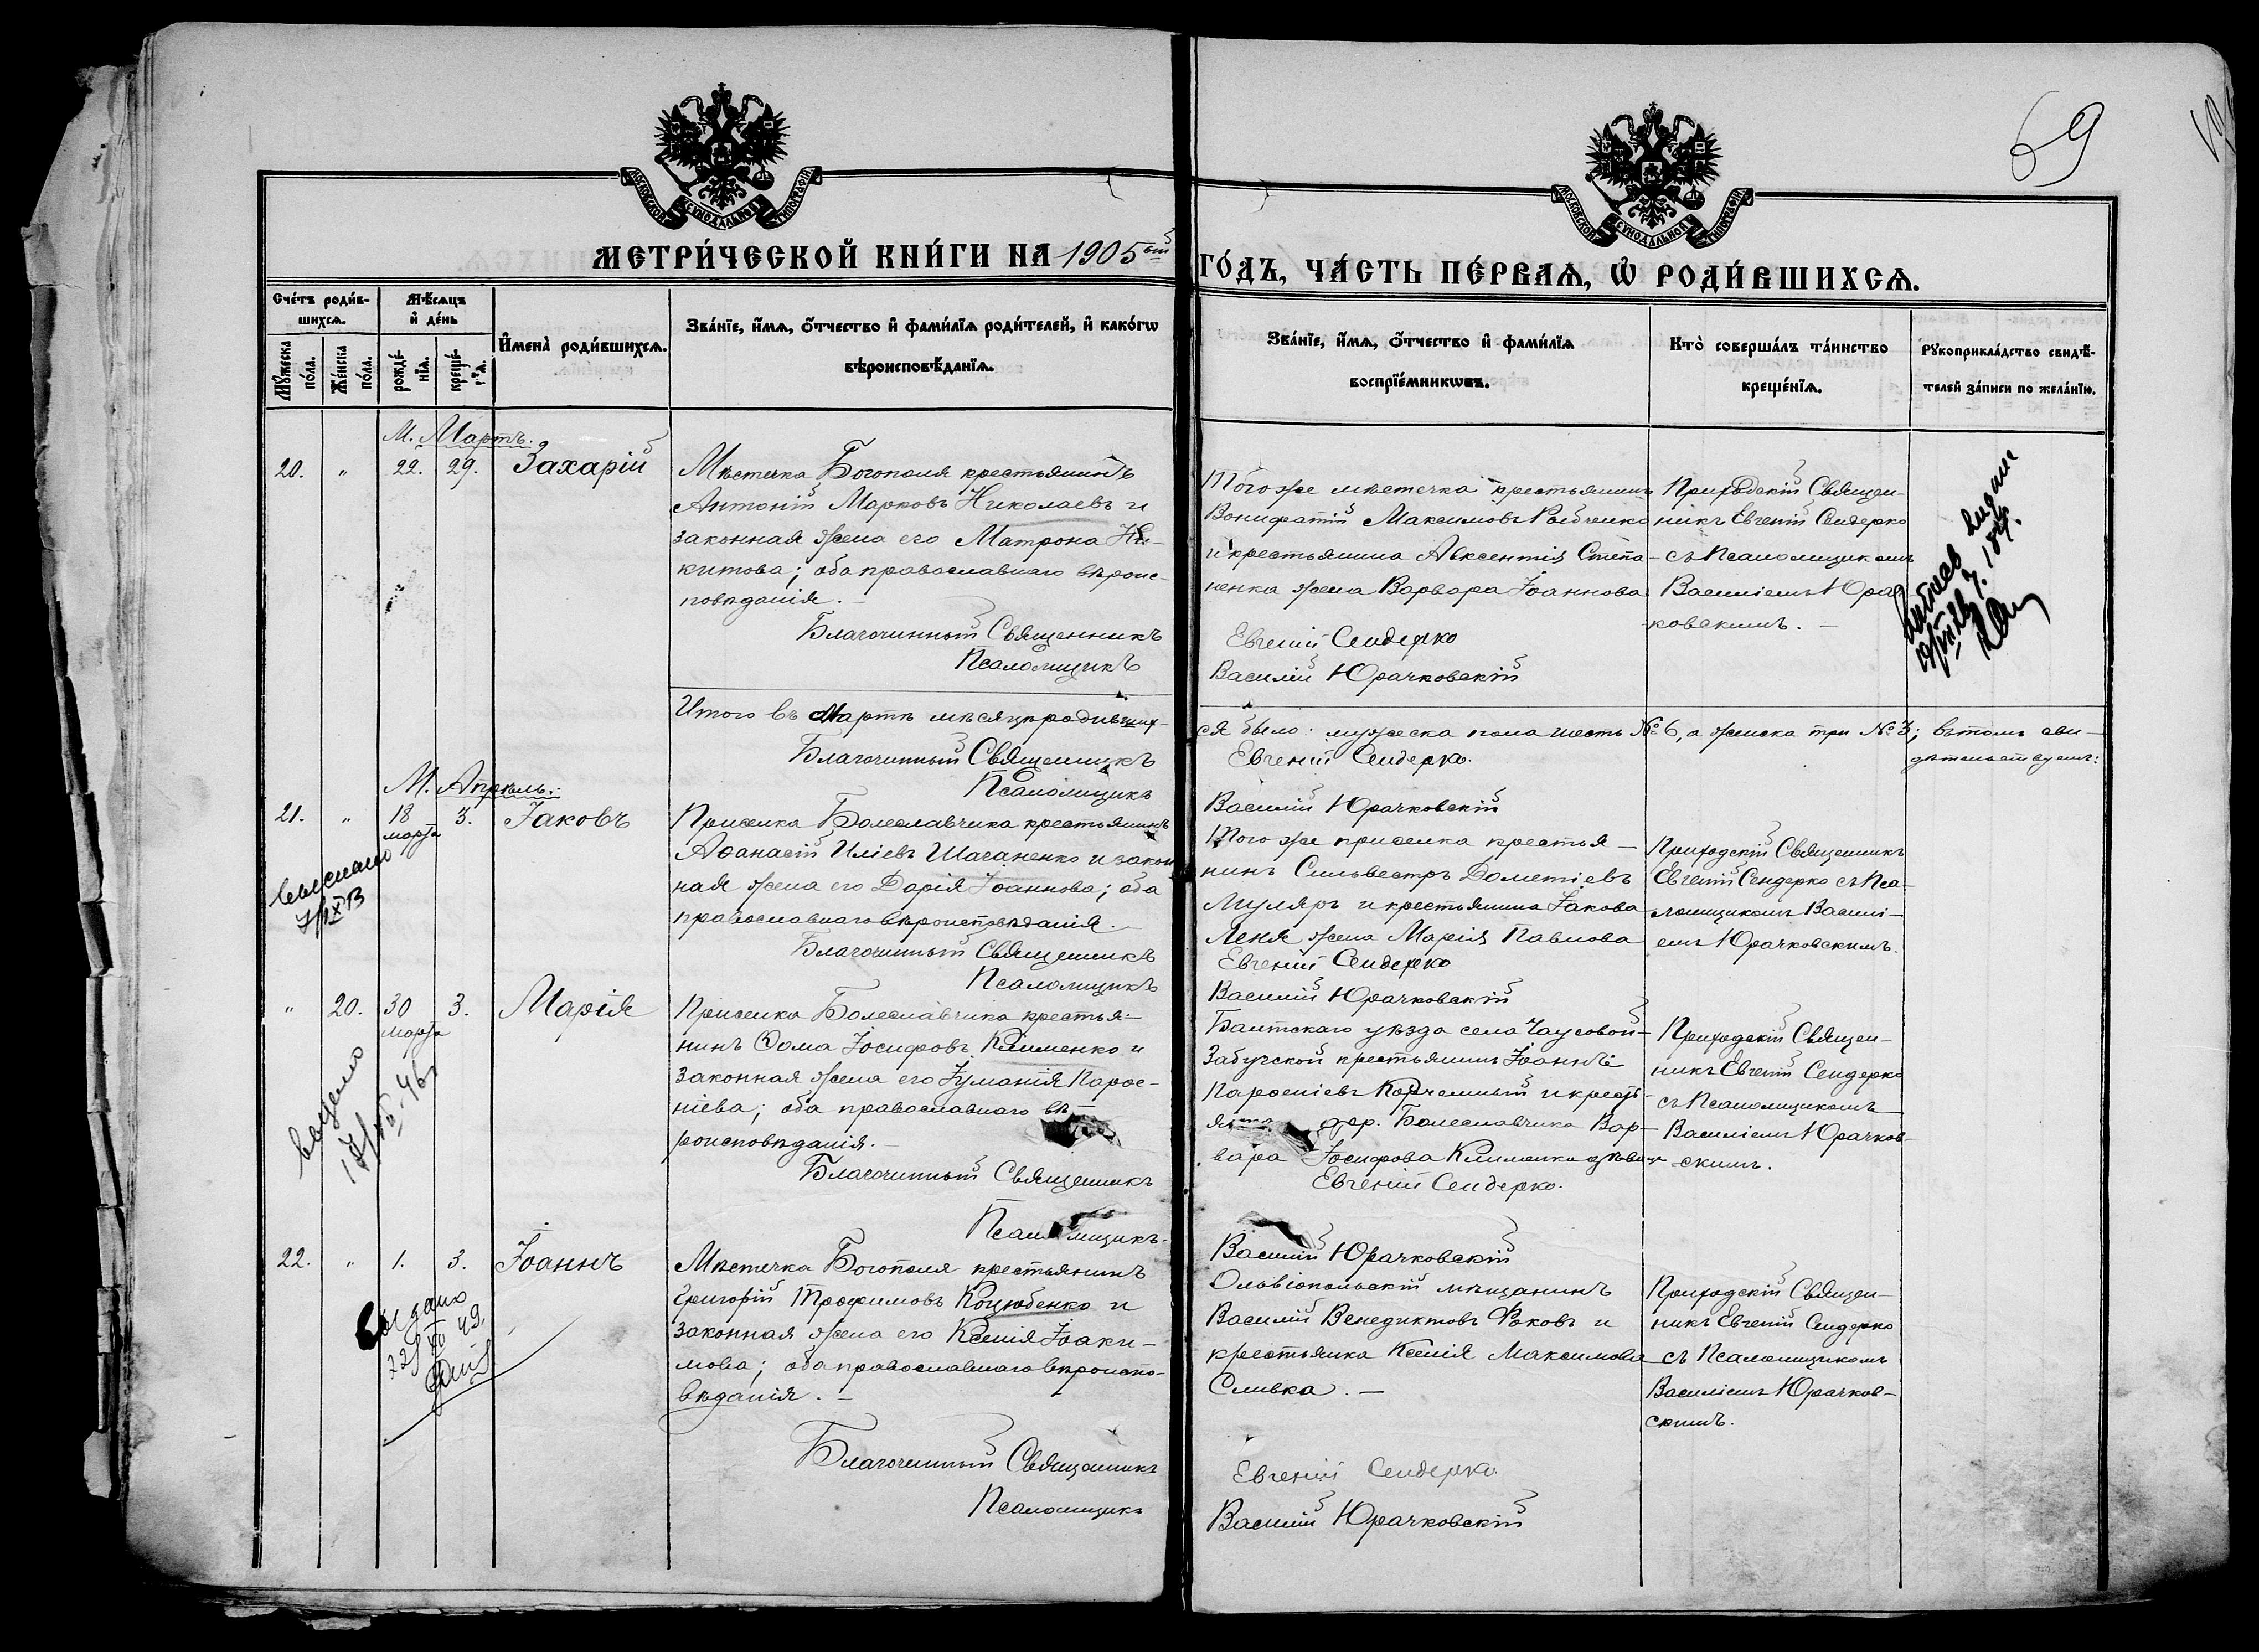 69
МОСКОВСКОЙ СѴНОДАЛЬНОЙ ТИПОГРАФІИ
МОСКОВСКОЙ СѴНОДАЛЬНОЙ ТИПОГРАФІИ
МЕТРИ́ЧЕСКОЙ КНИ́ГИ НА 1905ый ГО́ДЪ, ЧА́СТЬ ПЕ́РВАѦ, Ѡ҆ РОДИ́ВШИХСѦ.
Сче́тъ роди́в-
шихсѧ.
Мѣ́сѧцъ
и҆ де́нь
Мꙋ́жеска по́ла.
Же́нска по́ла.
рожде́-
нїѧ.
креще́-
нїѧ.
И҆мена̀ роди́вшихсѧ.
Зва́нїе, и҆́мѧ, ѻ҆́тчество и҆ фами́лїѧ роди́телей, и҆ како́гѡ
вѣроисповѣ́данїѧ.
Зва́нїе, и҆́мѧ, ѻ҆́тчество и҆ фами́лїѧ
воспрїе́мникѡвъ.
Кто̀ соверша́лъ та́инство
креще́нїѧ.
Рꙋкоприкла́дство свидѣ́-
телей за́писи по жела́нїю.
М. Мартъ.
20. " 22. 29. Захарій
Мѣстечка Богополя крестьянинъ
Антоній Марковъ Николаевъ и
законная жена его Матрона Ни-
китова; оба православнаго вѣроис-
повѣданія.
Благочинный Священникъ
Псаломщикъ
Того же мѣстечка крестьянинъ
Вонифатій Максимовъ
и крестьянина Авксентія Степа-
ненка жена Варвара Іоаннова
Евгеній Сендерко
Василій Юрачковскій
Приходскій Священ-
никъ Евгеній Сендерко
съ Псаломщикомъ
Василіемъ Юрач-
ковскимъ.
Итого въ Мартѣ мѣсяцѣ родивших-
ся было: мужеска пола шесть № 6, а женска три № 3; въ томъ сви-
дѣтельствуемъ:
Благочинный Священникъ
Псаломщикъ
Евгеній Сендерко.
Василій Юрачковскій
М. Апрѣль.
21. " 18 марта 3. Іаковъ
Приселка Болеславчика крестьянинъ
Аѳанасій Иліевъ Шаганенко и закон
ная жена его Дарія Іоаннова; оба
православнаго вѣроисповѣданія.
Благочинный Священникъ
Псаломщикъ
Того же приселка крестья-
нинъ Сильвестръ Дометіевъ
Муляръ и крестьянина Іакова
Леня жена Марія Павлова
Евгеній Сендерко
Василій Юрачковскій
Приходскій Священникъ
Евгеній Сендерко съ Пса-
ломщикомъ Василі-
емъ Юрачковскимъ.
" 20. 30 марта 3. Марія
Приселка Болеславчика крестья-
нинъ Ѳома Іосифовъ Клименко и
законная жена его Іуліанія Парѳе-
ніева; оба православнаго вѣ-
роисповѣданія.
Благочинный Священникъ
Псаломщикъ.
Балтскаго уѣзда села Чаусовой-
Забугской крестьянинъ Іоаннъ
Парѳеніевъ и кресть
дер. Болеславчика Вар-
вара Іосифова Клименко дѣвица
Евгеній Сендерко.
Василій Юрачковскій
Приходскій Священ-
никъ Евгеній Сендерко
съ Псаломщикомъ
Василіемъ Юрачков-
скимъ.
22. " 1. 3. Іоаннъ
Мѣстечка Богополя крестьянинъ
Григорій Трофимовъ Коцюбенко и
законная жена его Ксенія Іоаки-
мова; оба православнаго вѣроиспо-
вѣданія.
Благочинный Священникъ
Псаломщикъ
Ольвіопольскій мѣщанинъ
Василій Венедиктовъ и
крестьянка Ксенія Максимова
Сливка.
Евгеній Сендерко.
Василій Юрачковскій
Приходскій Священ-
никъ Евгеній Сендерко
съ Псаломщикомъ
Василіемъ Юрачков-
скимъ.